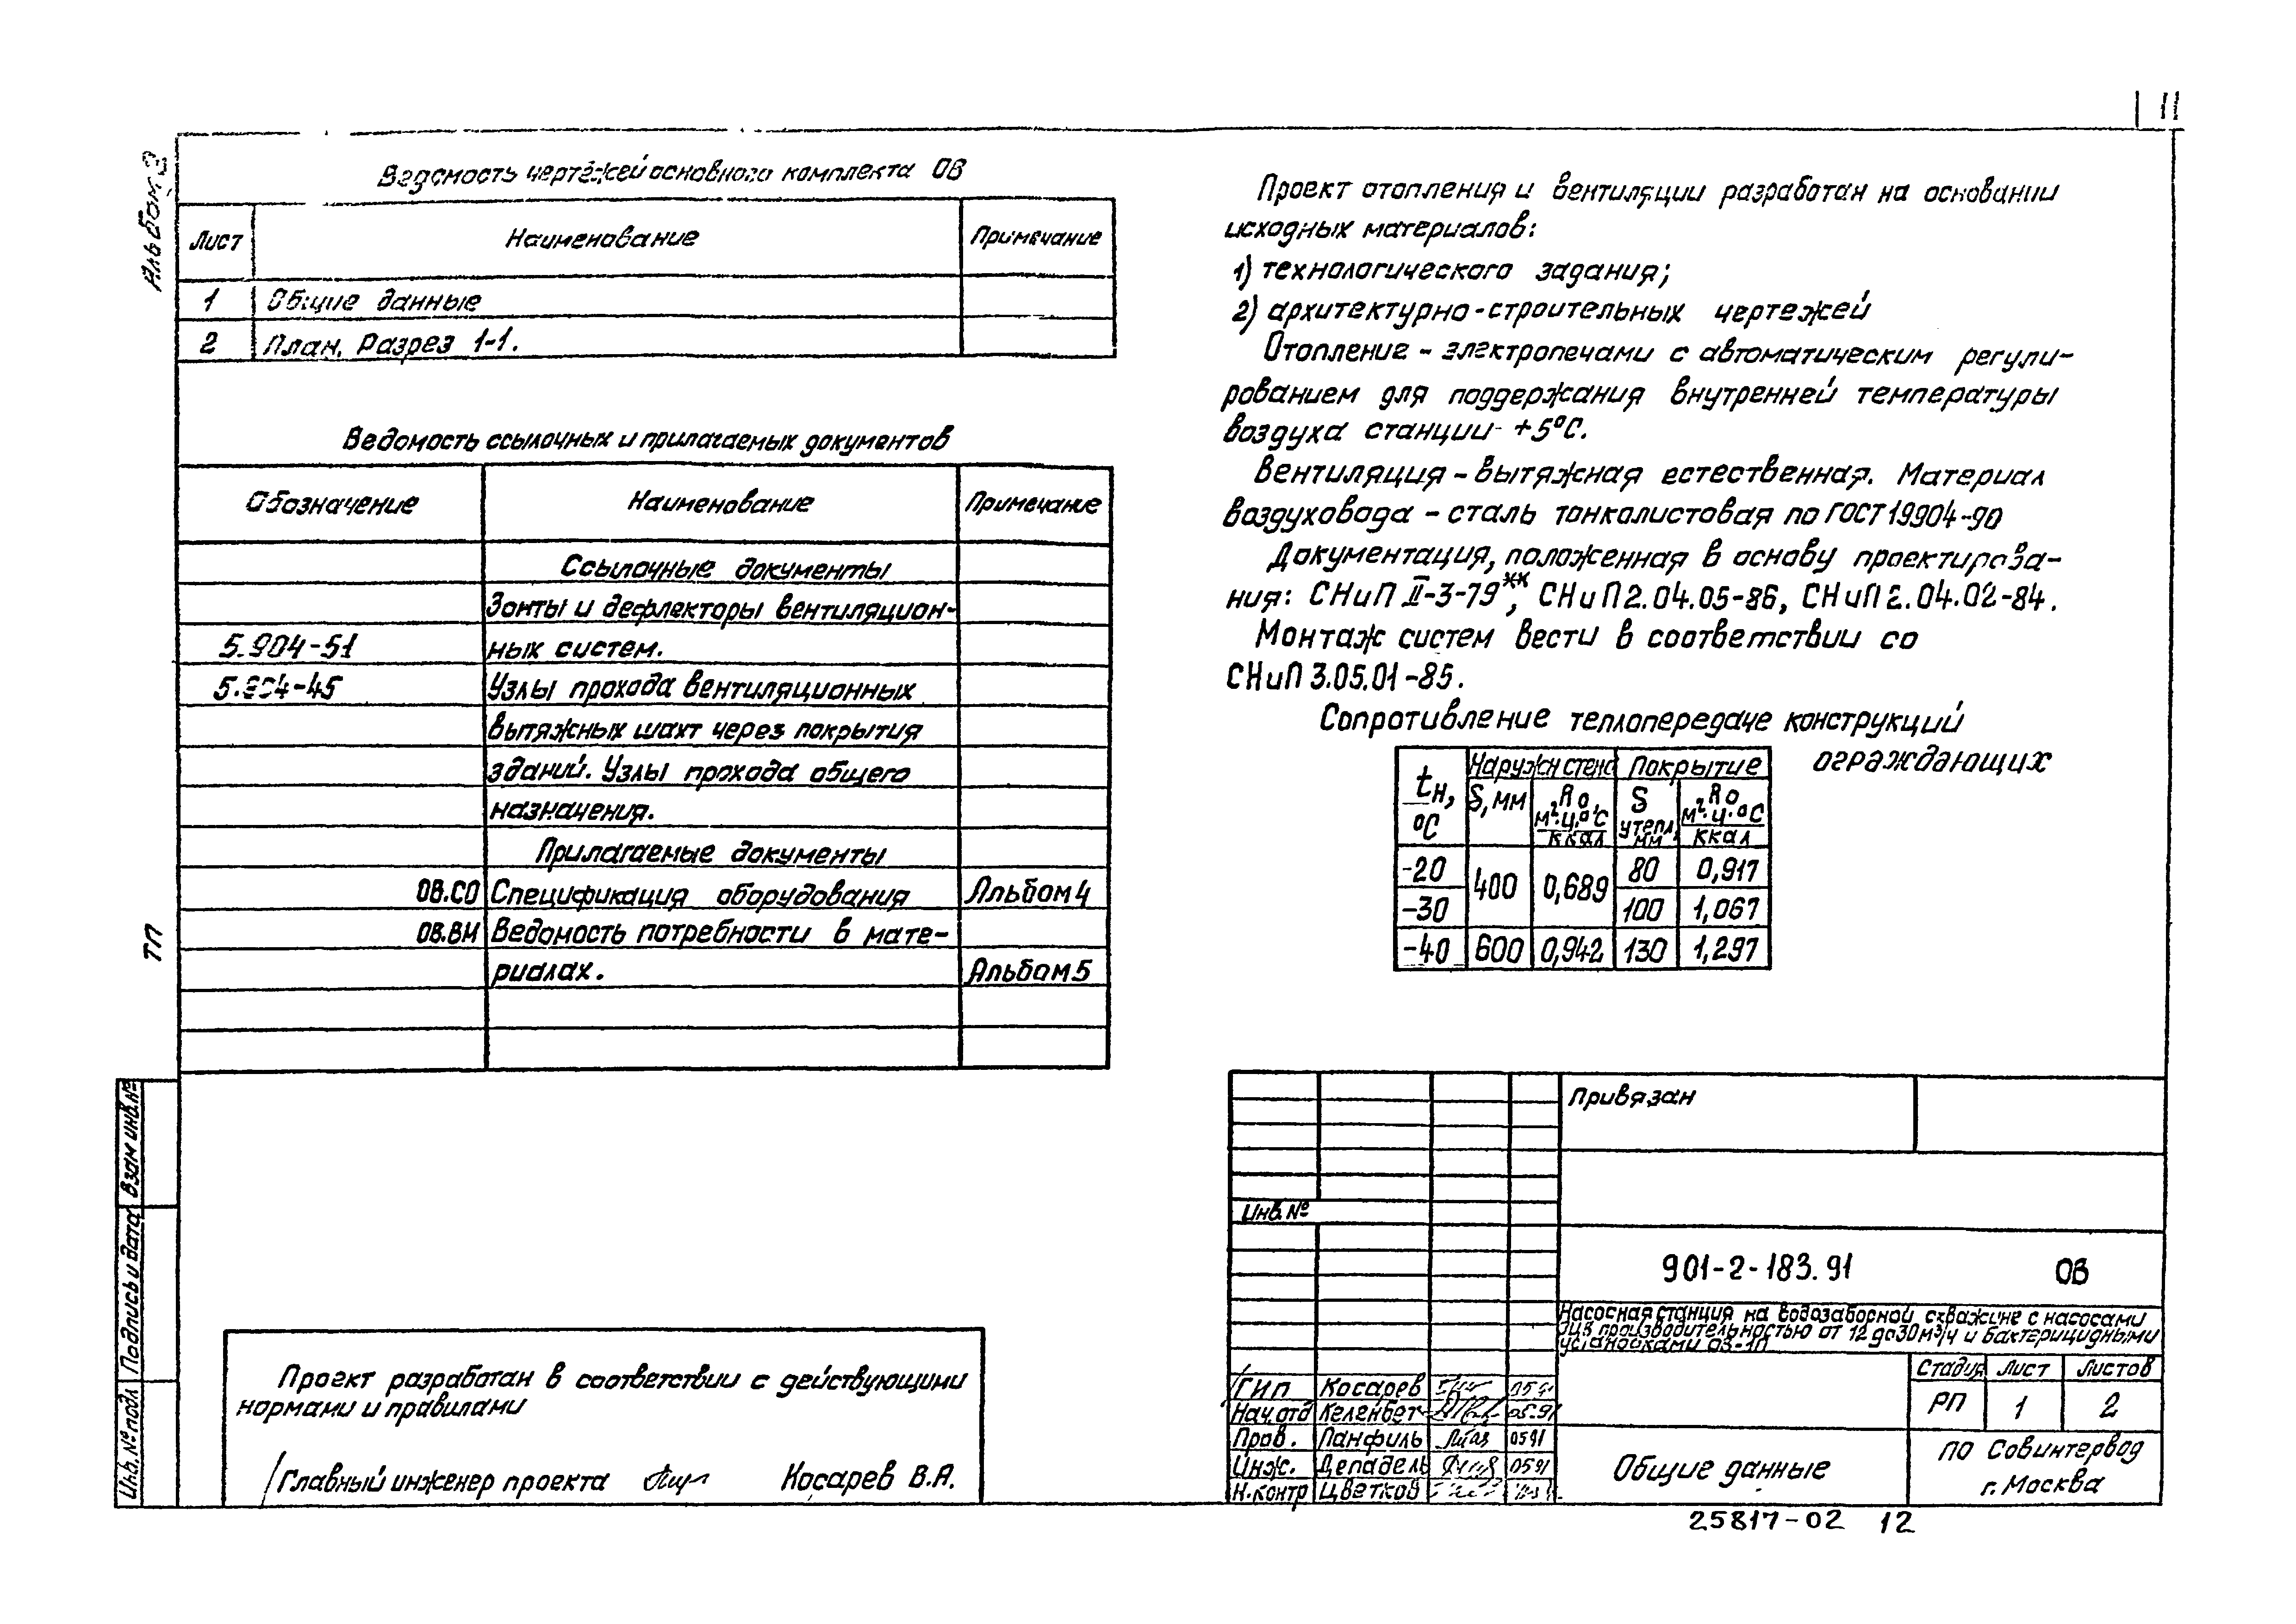 11
Альбом 3
Ведомость чертежей основного комплекта ОВ
Лист Наименование Примечание
1 Общие данные
2 План. Разрез 1-1.
Ведомость ссылочных и прилагаемых документов
Обозначение Наименование Примечание
Ссылочные документы
Зонты и дефлекторы вентиляцион-
5.904-51 ных систем.
5.904-45 Узлы прохода вентиляционных
вытяжных шахт через покрытия
зданий. Узлы прохода общего
назначения.
Прилагаемые документы
ОВ.СО Спецификация оборудования Альбом 4
ОВ.ВМ Ведомость потребности в мате-
риалах. Альбом 5
ТП
Взам инв.№
Подпись и дата
Инв.№ подл
Проект разработан в соответствии с действующими
нормами и правилами
Главный инженер проекта Косарев В.А.
Проект отопления и вентиляции разработан на основании
исходных материалов:
1) технологического задания;
2) архитектурно-строительных чертежей
Отопление - электропечами с автоматическим регули-
рованием для поддержания внутренней температуры
воздуха станции +5°С.
Вентиляция - вытяжная естественная. Материал
воздуховода - сталь тонколистовая по ГОСТ 19904-90
Документация, положенная в основу проектирова-
ния: СНиП II-3-79**, СНиП 2.04.05-86, СНиП 2.04.02-84.
Монтаж систем вести в соответствии со
СНиП 3.05.01-85.
Сопротивление теплопередаче конструкций
ограждающих
tн, °С Наружн стена Покрытие
S, мм Rо м²·ч·°С/ккал S утепл, мм Rо м²·ч·°С/ккал
-20 400 0,689 80 0,917
-30 100 1,067
-40 600 0,942 130 1,297
Привязан
Инв.№
901-2-183.91 ОВ
Насосная станция на водозаборной скважине с насосами
ЭЦВ производительностью от 12 до 30 м³/ч и бактерицидными
установками ОВ-1П
Стадия Лист Листов
РП 1 2
ГИП Косарев 05.91
Нач.отд Келенбет 05.91
Пров. Панфиль 0591
Инж. Депадель 0591
Н.контр Цветков
Общие данные
ПО Совинтервод
г. Москва
25817-02 12